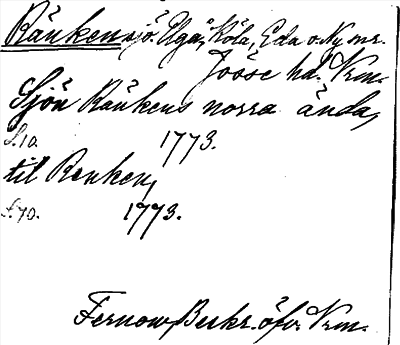 Ränken sjö. Elgå, Köla, Eda o. Ny snr.
Jösse hd. Vrm.
Sjön Ränkens norra ända,
s. 10. 1773.
til Renken,
s. 70. 1773.
Fernow Beskr. öfv. Vrm.